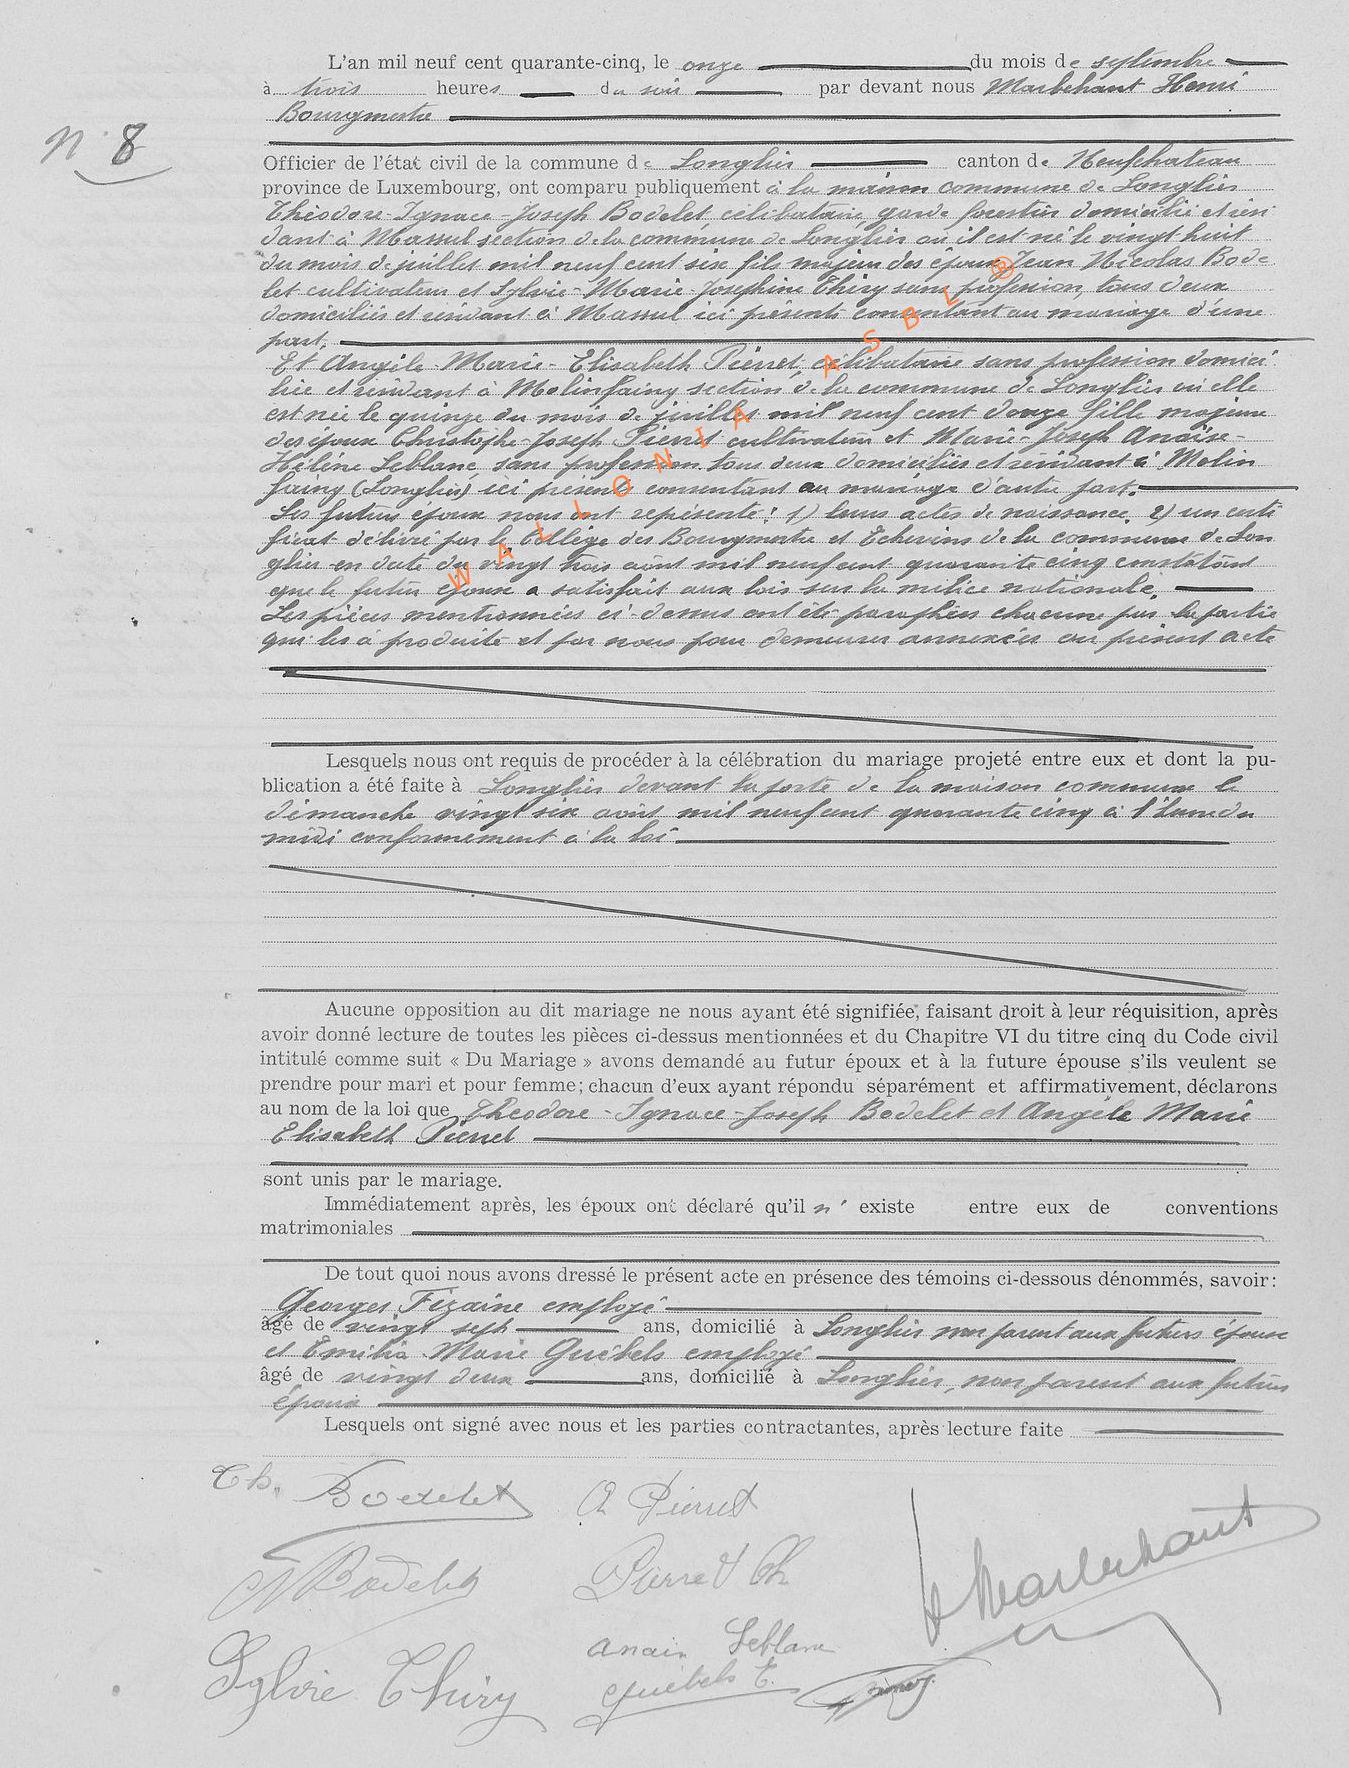 L'an mil neuf cent quarante-cinq, le onze du mois de septembre
à trois heures du soir par devant nous Marbehant Henri
Bourgmestre
N° 8
Officier de l'état civil de la commune de Longlier canton de Neufchateau
province de Luxembourg, ont comparu publiquement à la maison commune de Longlier
Théodore-Ignace-Joseph Bodelet célibataire, garde forestier domicilié et rési
dant à Massul section de la commune de Longlier où il est né le vingt-huit
du mois de juillet mil neuf cent six fils majeur des époux Jean Nicolas Bode
let cultivateur et Sylvie-Marie-Joséphine Thiry sans profession, tous deux
domiciliés et résidant à Massul ici présents consentant au mariage d'une
part.
Et Angèle-Marie-Elisabeth Pierret, célibataire sans profession domici
liée et résidant à Molinfaing section de la commune de Longlier où elle
est née le quinze du mois de juillet mil neuf cent douze fille majeure
des époux Christophe-Joseph Pierret cultivateur et Marie-Joseph Anaïse-
Hélène Leblanc sans profession tous deux domiciliés et résidant à Molin
faing (Longlier) ici présents consentant au mariage d'autre part.
Les futurs époux nous ont représenté : 1) leurs actes de naissance. 2) un certi
ficat délivré par le Collège des Bourgmestre et Echevins de la commune de Lon
glier en date du vingt trois août mil neuf cent quarante cinq constatant
que le futur époux a satisfait aux lois sur la milice nationale.
Les pièces mentionnées ci-dessus ont été paraphées chacune par la partie
qui les a produite et par nous pour demeurer annexées au présent acte
WALLONIA ASBL ®
Lesquels nous ont requis de procéder à la célébration du mariage projeté entre eux et dont la pu-
blication a été faite à Longlier devant la porte de la maison commune le
dimanche vingt six août mil neuf cent quarante cinq à l'heure de
midi conformément à la loi
Aucune opposition au dit mariage ne nous ayant été signifiée, faisant droit à leur réquisition, après
avoir donné lecture de toutes les pièces ci-dessus mentionnées et du Chapitre VI du titre cinq du Code civil
intitulé comme suit « Du Mariage » avons demandé au futur époux et à la future épouse s'ils veulent se
prendre pour mari et pour femme; chacun d'eux ayant répondu séparément et affirmativement, déclarons
au nom de la loi que Théodore-Ignace-Joseph Bodelet et Angèle Marie
Elisabeth Pierret
sont unis par le mariage.
Immédiatement après, les époux ont déclaré qu'il n' existe entre eux de conventions
matrimoniales
De tout quoi nous avons dressé le présent acte en présence des témoins ci-dessous dénommés, savoir:
Georges Fizaine employé
âgé de vingt sept ans, domicilié à Longlier non parent aux futurs époux
et Emilia Marie Guébels employé
âgé de vingt deux ans, domicilié à Longlier, non parent aux futurs
époux
Lesquels ont signé avec nous et les parties contractantes, après lecture faite
Th. Bodelet A Pierret
N Bodelet Pierret Ch H Marbehant
Anaïs Leblanc
Sylvie Thiry Guébels E.